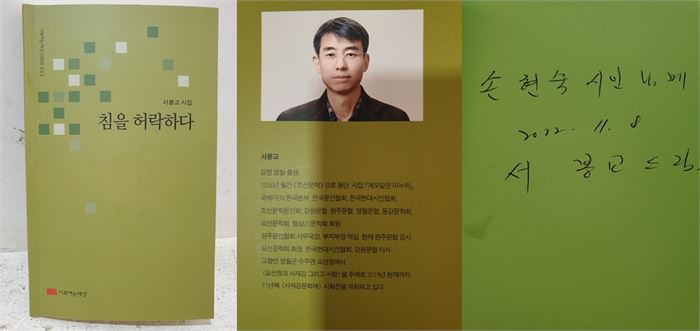 서봉교 시집
침을 허락하다
시로여는세상
서봉교
강원 영월 출생.
2006년 월간 《조선문학》으로 등단, 시집 『계모같은 마누라』
국제PEN 한국본부, 한국문인협회, 한국현대시인협회,
조선문학문인회, 강원문협, 원주문협, 영월문협, 동강문학회,
요선문학회, 형상21문학회 회원
원주문인협회 사무국장, 부지부장 역임, 현재 원주문협 감사
요선문학회 회장, 한국현대시인협회, 강원문협 이사
고향인 영월군 수주면 요선정에서
《요선정과 사재강 그리고 사람》을 주제로 2019년 현재까지
11년째 《사재강문화제》 시화전을 개최하고 있다.
손현숙 시인 님께
2022. 11. 8
서봉교 드림.